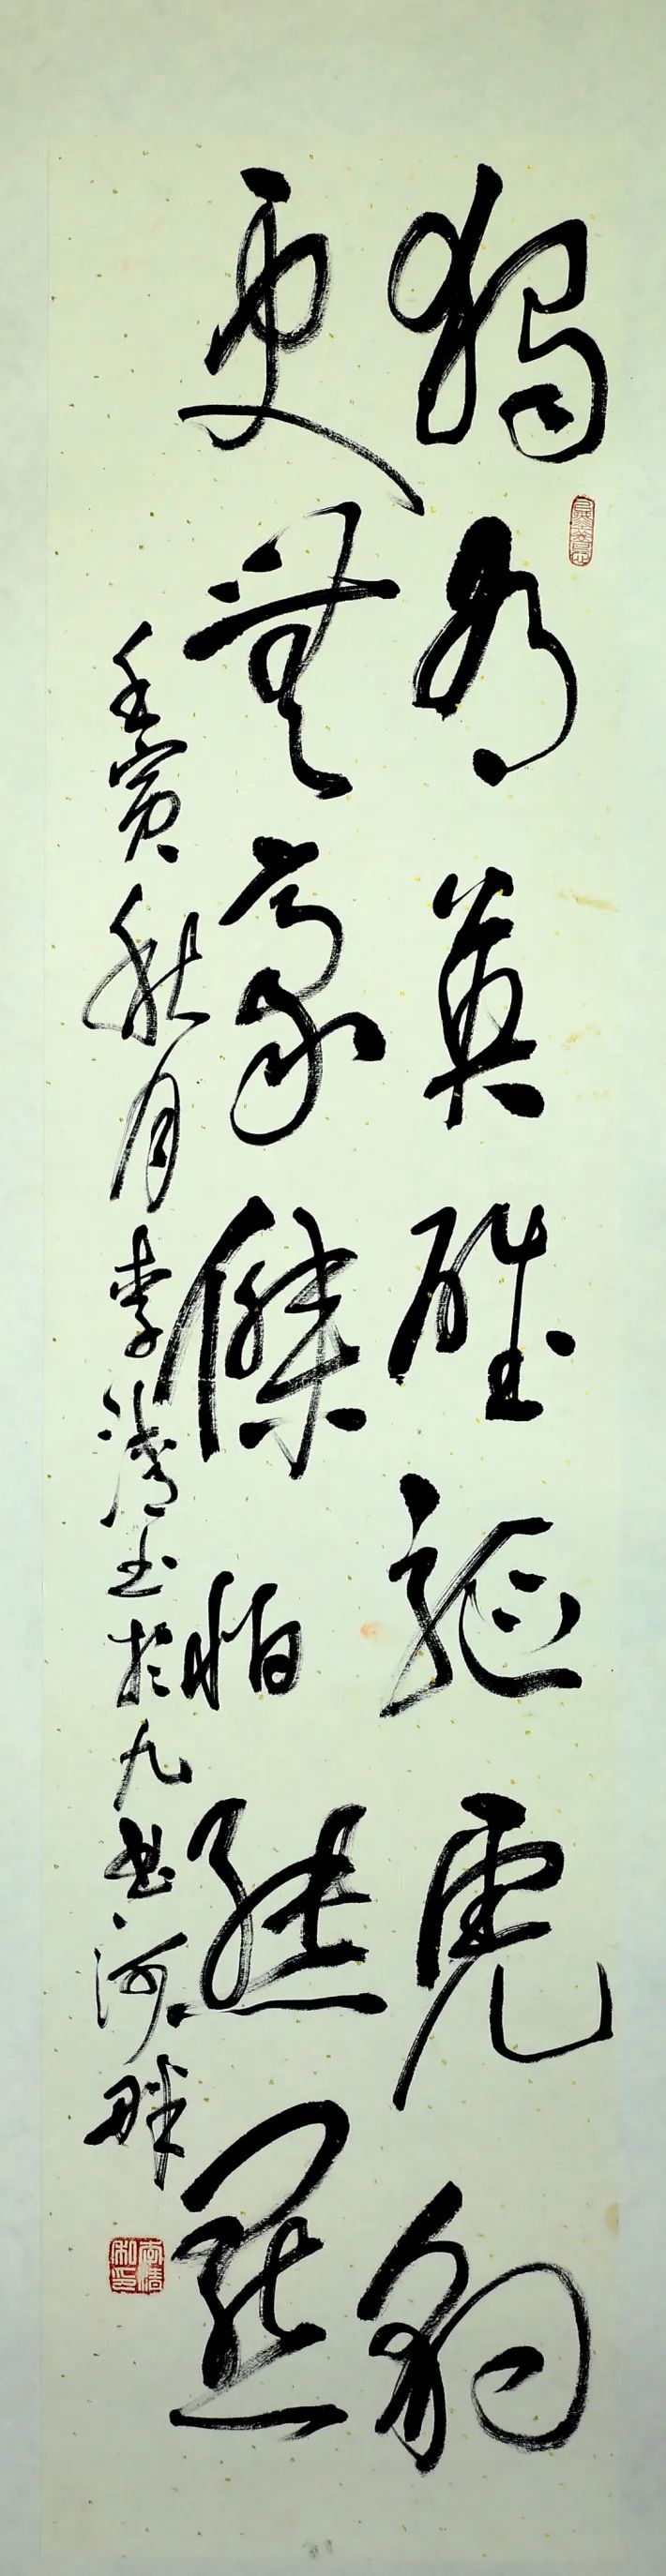 独有英雄驱虎豹
更無豪傑怕熊羆
壬寅秋月李清玉於九曲河畔